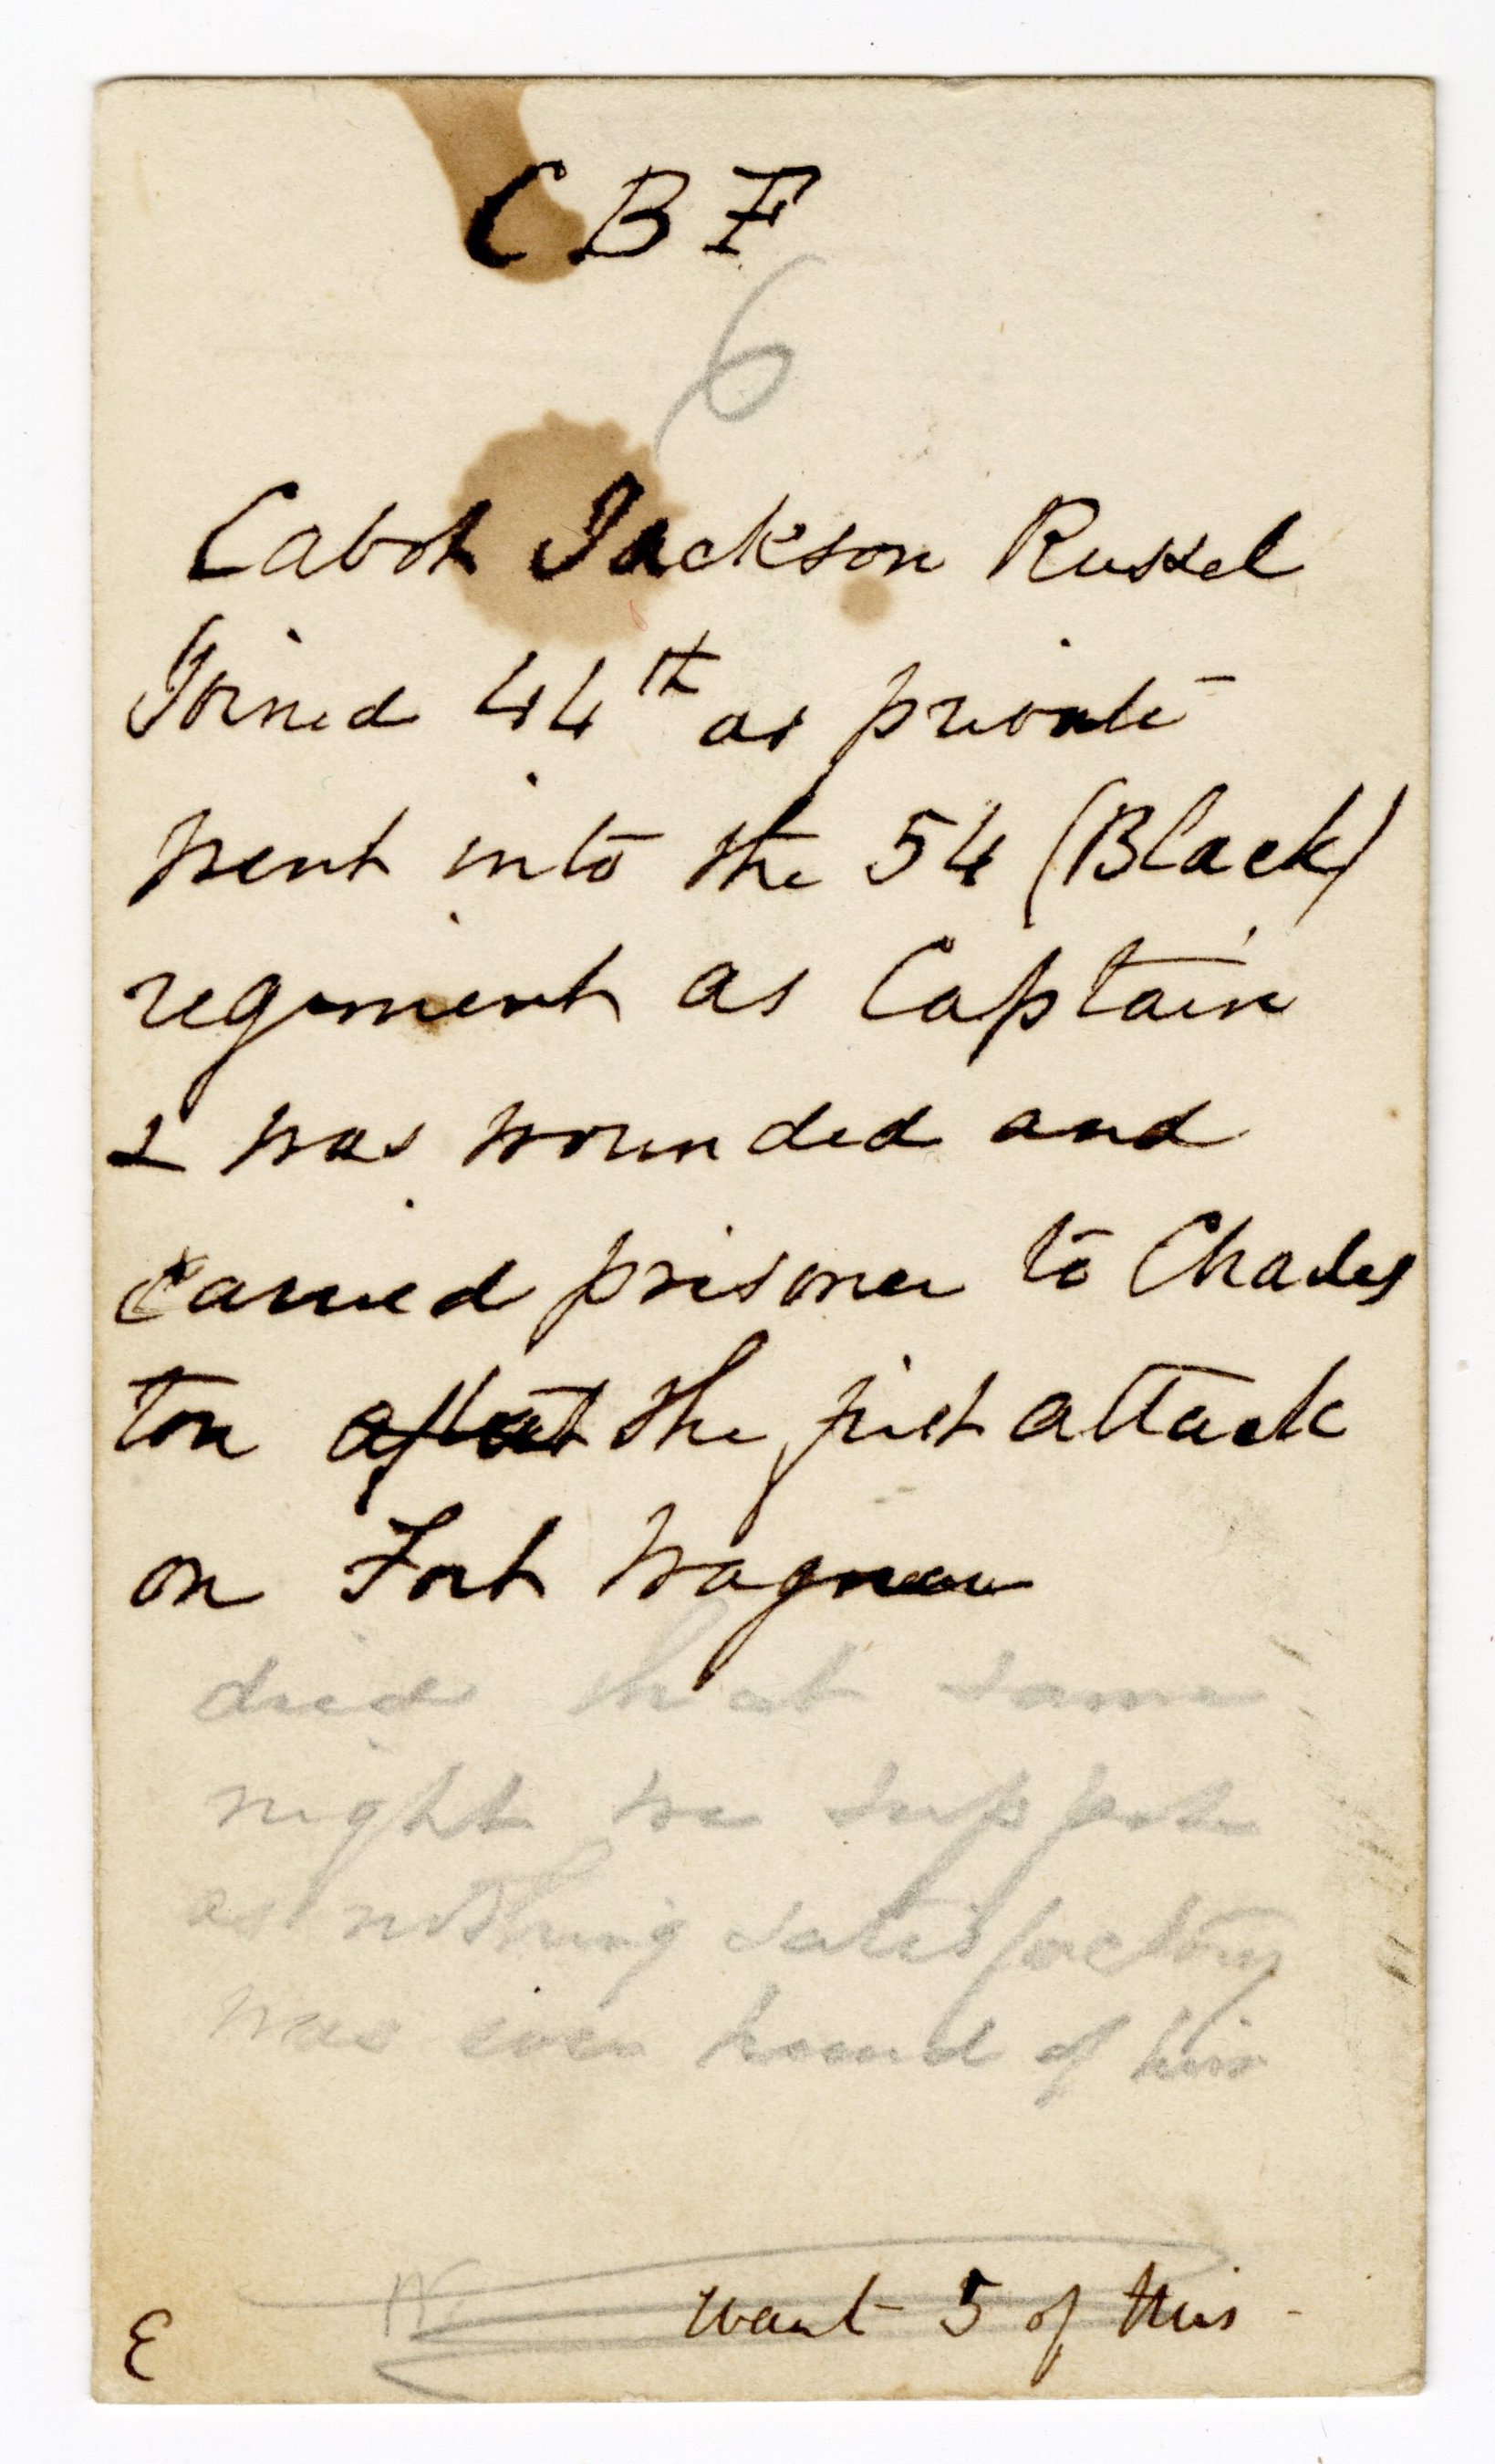 C B F
6
Cabot Jackson Russel
Joined 44th as private
went into the 54 (Black)
regiment as Captain
& was wounded and
carried prisoner to Charles
ton after the first attack
on Fort Wagner
died that same
night we suppose
as nothing satisfactory
was ever heard of him
want 5 of this -
E